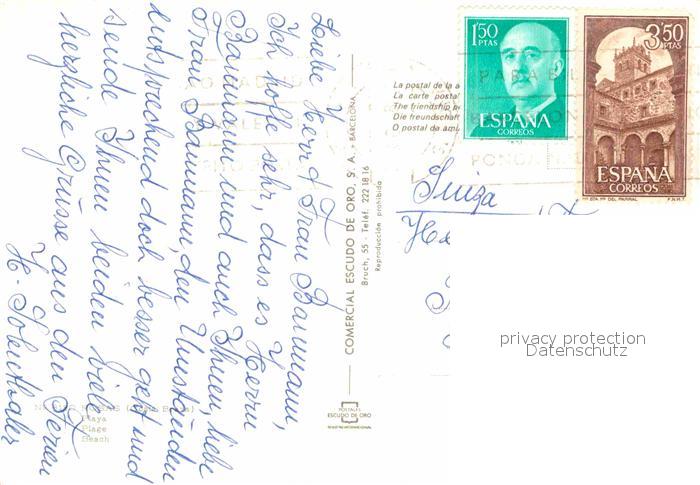 Liebe Herr & Frau Baumann,
Ich hoffe sehr, dass es Herrn
Baumann und auch Ihnen, liebe
Frau Baumann, den Umständen
entsprechend doch besser geht und
sende Ihnen beiden viele
herzliche Grüsse aus den Ferien
Playa
Plage
Beach
COMERCIAL ESCUDO DE ORO, S. A. - BARCELONA
Bruch, 55 - Teléf. 222 18 16
Reproducción prohibida
POSTALES
ESCUDO DE ORO
La postal de la a
La carte postal
The friendship p
Die freundschaft
O postal da ami
1'50
PTAS
ESPAÑA
CORREOS
3'50
PTAS
ESPAÑA
CORREOS
Mº STA Mª DEL PARRAL F.N.M.T.
Suiza
privacy protection
Datenschutz